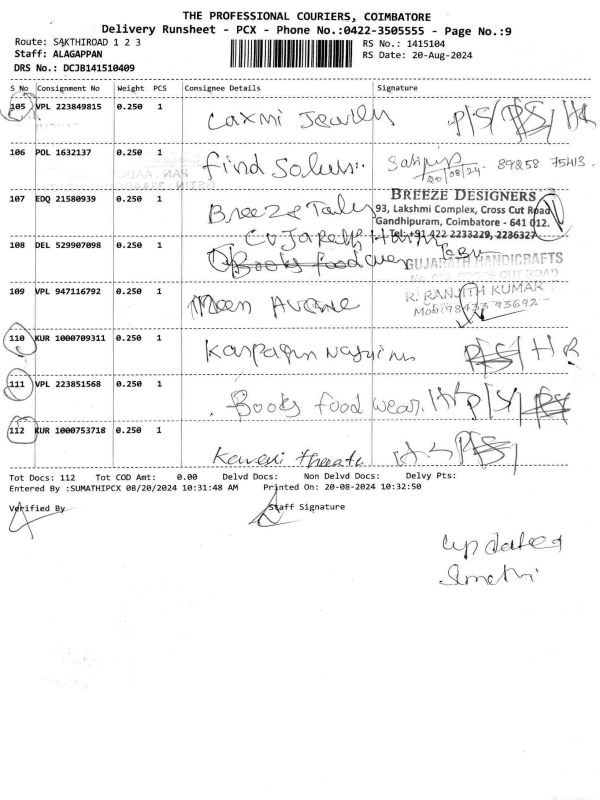 THE PROFESSIONAL COURIERS, COIMBATORE
Delivery Runsheet - PCX - Phone No.:0422-3505555 - Page No.:9
Route: SAKTHIROAD 1 2 3
RS No.: 1415104
Staff: ALAGAPPAN
RS Date: 20-Aug-2024
DRS No.: DCJB141510409
S No Consignment No Weight PCS Consignee Details Signature
105 VPL 223849815 0.250 1 Laxmi
106 POL 1632137 0.250 1 find
20/08/24. 89258 75413.
107 EDQ 21580939 0.250 1 Breeze
BREEZE DESIGNERS
93, Lakshmi Complex, Cross Cut Road
Gandhipuram, Coimbatore - 641 012.
Tel: +91 422 2233229, 2236327
108 DEL 529907098 0.250 1
GUJARATH HANDICRAFTS
CUT ROAD
109 VPL 947116792 0.250 1
R. RANJITH KUMAR
Mobi 98433 93692
110 KUR 1000709311 0.250 1
111 VPL 223851568 0.250 1 Books food wear.
112 KUR 1000753718 0.250 1
Tot Docs: 112 Tot COD Amt: 0.00 Delvd Docs: Non Delvd Docs: Delvy Pts:
Entered By :SUMATHIPCX 08/20/2024 10:31:48 AM Printed On: 20-08-2024 10:32:50
Verified By Staff Signature
updated
Sumathi